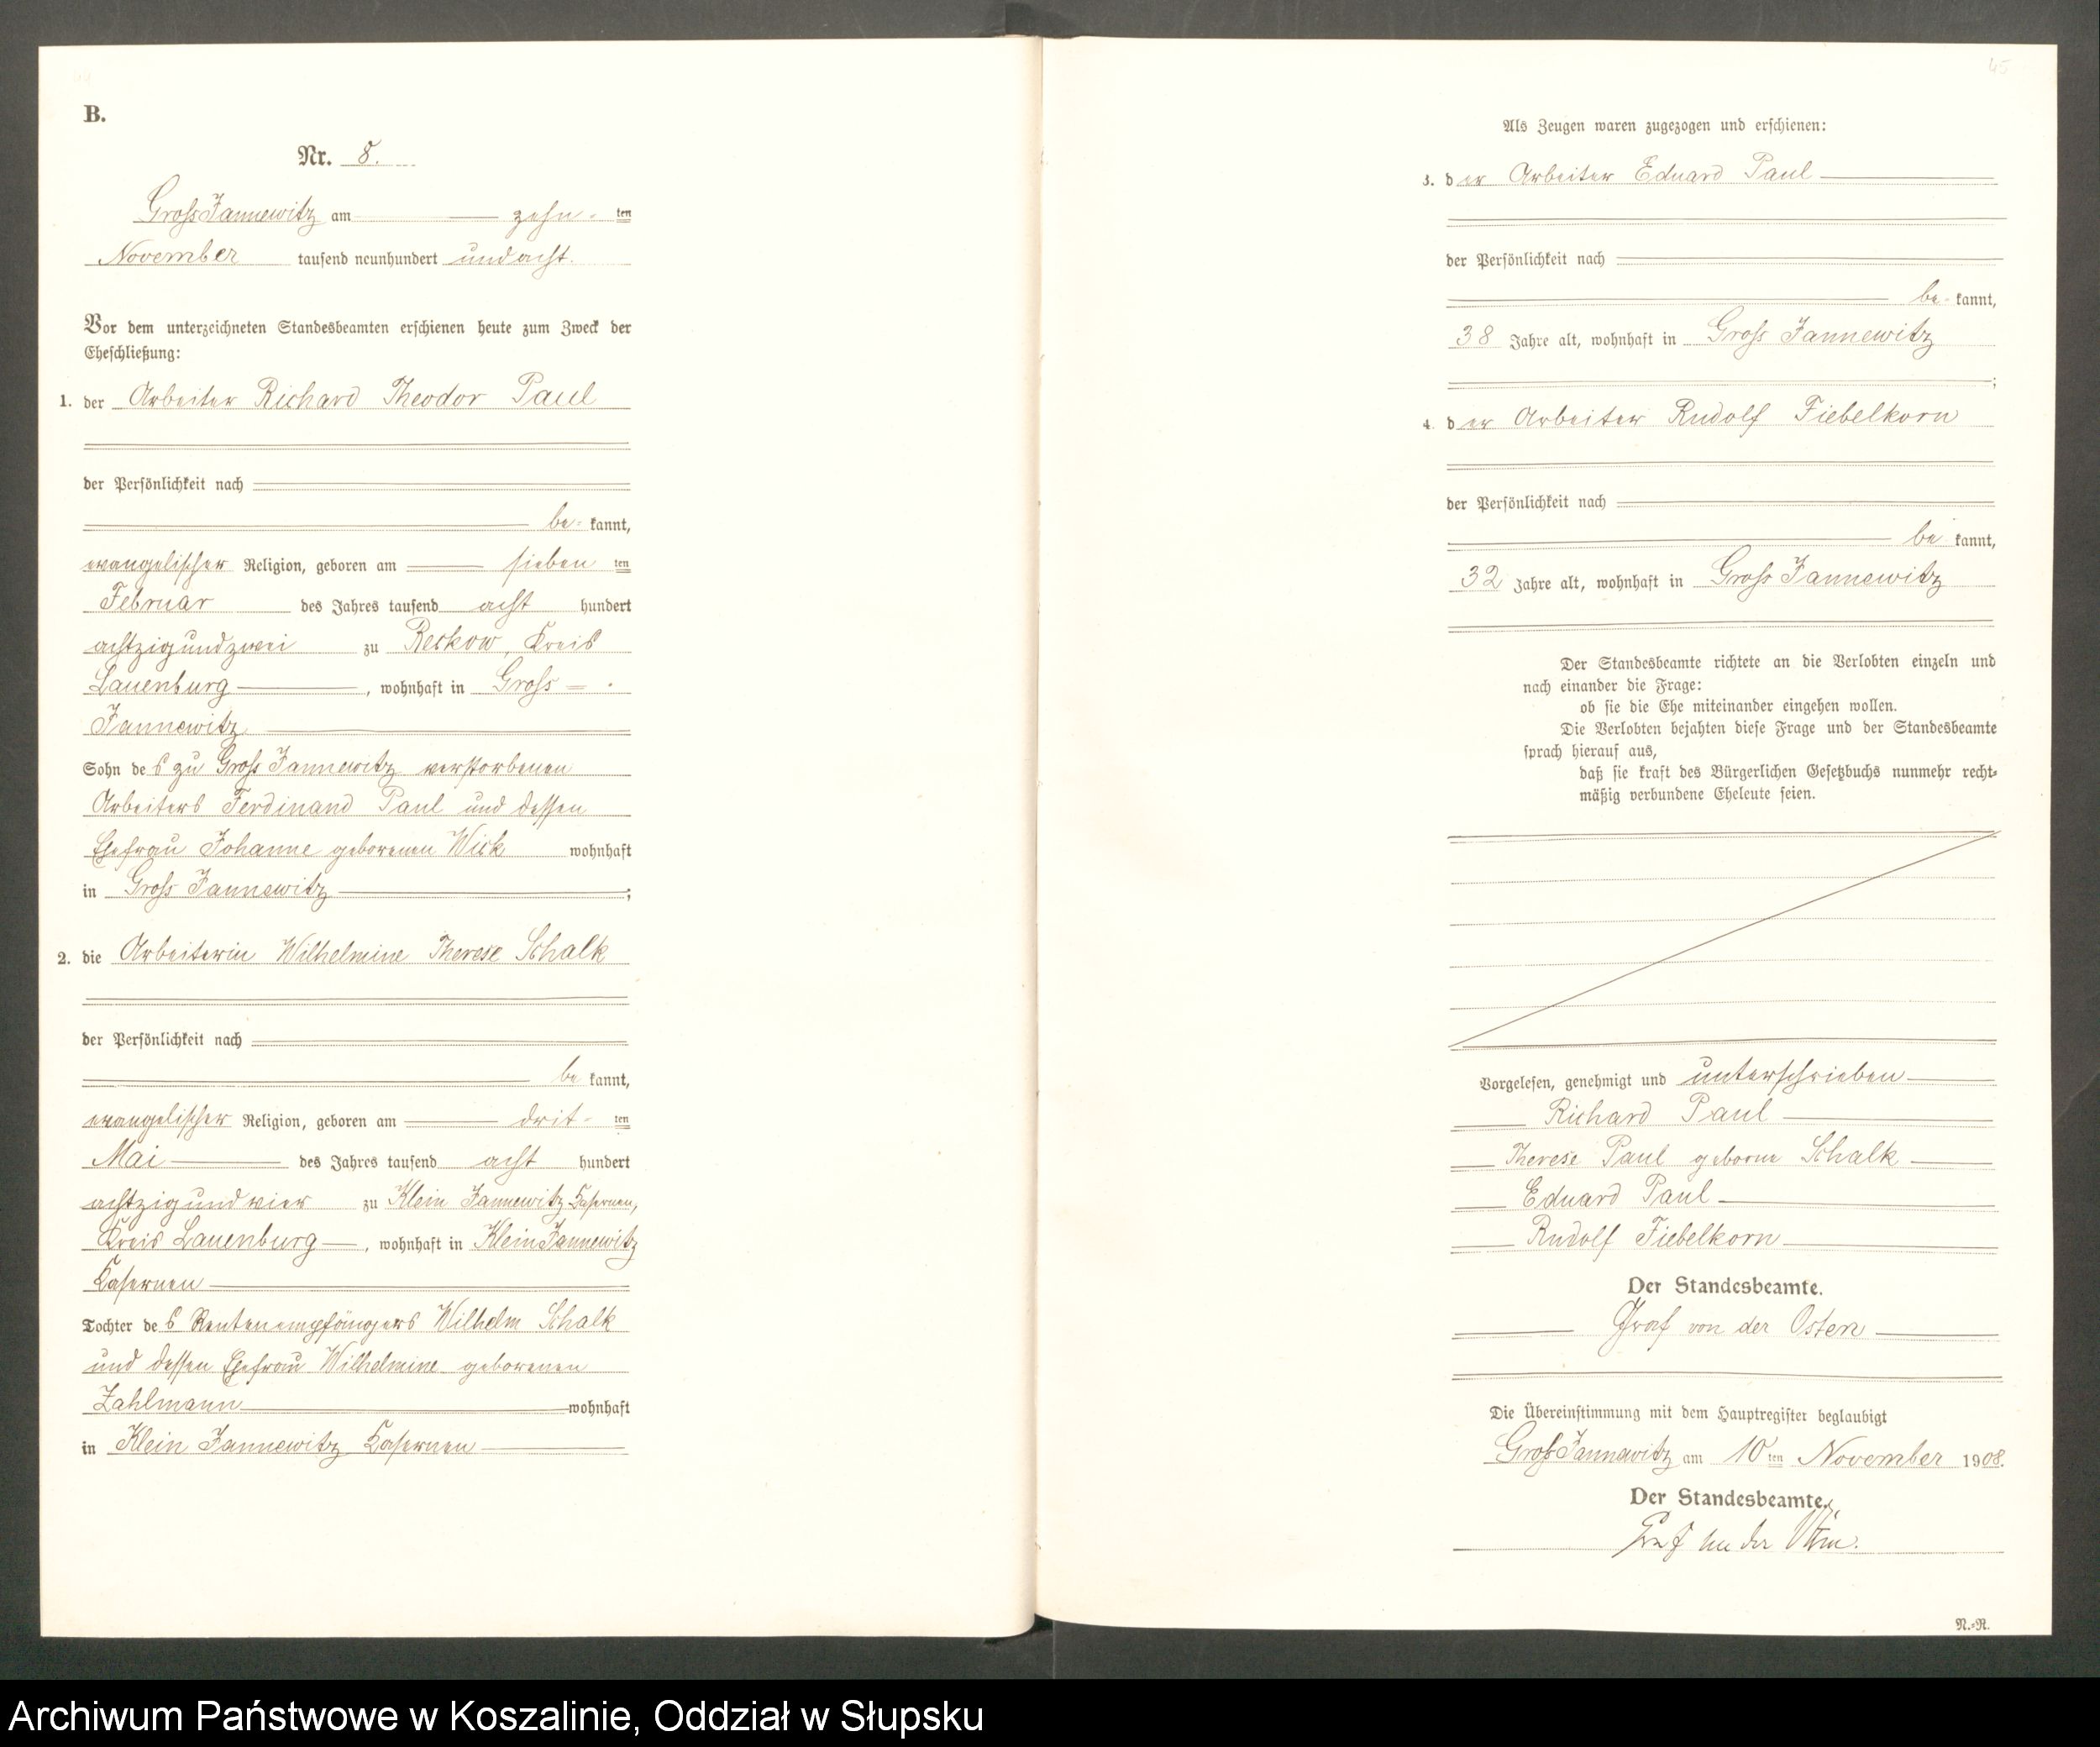 B.
Nr. 8.
Gross Jannewitz am zehn-ten
November tausend neunhundert und acht.
Vor dem unterzeichneten Standesbeamten erschienen heute zum Zweck der
Eheschließung:
1. der Arbeiter Richard Theodor Paul
der Persönlichkeit nach
be- kannt,
evangelischer Religion, geboren am sieben ten
Februar des Jahres tausend acht hundert
achtzig und zwei zu Reckow, Kreis
Lauenburg, wohnhaft in Gross =
Jannewitz
Sohn des zu Gross Jannewitz verstorbenen
Arbeiters Ferdinand Paul und dessen
Ehefrau Johanne geborenen Wick wohnhaft
in Gross Jannewitz;
2. die Arbeiterin Wilhelmine Therese Schalk
der Persönlichkeit nach
be kannt,
evangelischer Religion, geboren am drit- ten
Mai des Jahres tausend acht hundert
achtzig und vier zu Klein Jannewitz Kasernen,
Kreis Lauenburg, wohnhaft in Klein Jannewitz
Kasernen
Tochter des Rentenempfängers Wilhelm Schalk
und dessen Ehefrau Wilhelmine geborenen
Zahlmann wohnhaft
in Klein Jannewitz Kasernen
45
Als Zeugen waren zugezogen und erschienen:
3. der Arbeiter Eduard Paul
der Persönlichkeit nach
be- kannt,
38 Jahre alt, wohnhaft in Gross Jannewitz
;
4. der Arbeiter Rudolf Fiebelkorn
der Persönlichkeit nach
be kannt,
32 Jahre alt, wohnhaft in Gross Jannewitz
Der Standesbeamte richtete an die Verlobten einzeln und
nach einander die Frage:
ob sie die Ehe miteinander eingehen wollen.
Die Verlobten bejahten diese Frage und der Standesbeamte
sprach hierauf aus,
daß sie kraft des Bürgerlichen Gesetzbuchs nunmehr recht-
mäßig verbundene Eheleute seien.
Vorgelesen, genehmigt und unterschrieben
Richard Paul
Therese Paul geborne Schalk
Eduard Paul
Rudolf Fiebelkorn
Der Standesbeamte.
Graf von der Osten
Die Übereinstimmung mit dem Hauptregister beglaubigt
Gross Jannewitz am 10ten November 1908.
Der Standesbeamte.
Graf von der Osten.
N.-R.
Archiwum Państwowe w Koszalinie, Oddział w Słupsku